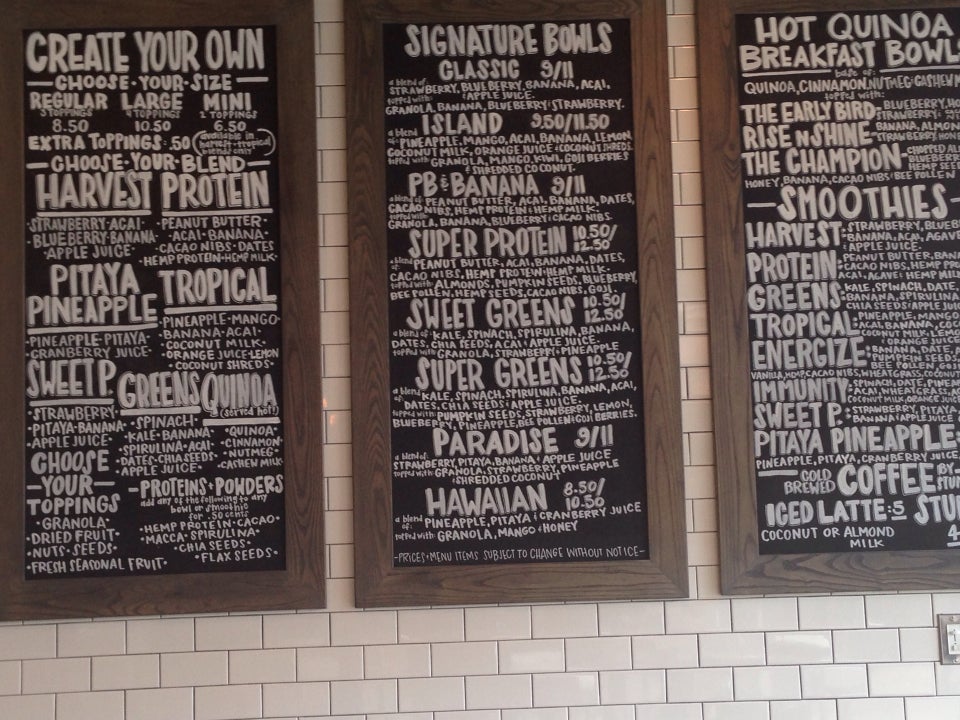 CREATE YOUR OWN
CHOOSE·YOUR·SIZE
REGULAR LARGE MINI
3 TOPPINGS 4 TOPPINGS 2 TOPPINGS
8.50 10.50 6.50
EXTRA TOPPINGS: .50
available in harvest + tropical blends only
CHOOSE·YOUR·BLEND
HARVEST
·STRAWBERRY·ACAI·
·BLUEBERRY·BANANA·
·APPLE JUICE·
PROTEIN
·PEANUT BUTTER·
·ACAI·BANANA·
·CACAO NIBS·DATES
·HEMP PROTEIN·HEMP MILK·
PITAYA
PINEAPPLE
·PINEAPPLE·PITAYA·
·CRANBERRY JUICE·
TROPICAL
·PINEAPPLE·MANGO·
·BANANA·ACAI·
·COCONUT MILK·
·ORANGE JUICE·LEMON
·COCONUT SHREDS·
SWEET P.
·STRAWBERRY·
·PITAYA·BANANA·
·APPLE JUICE·
GREENS
·SPINACH·
·KALE·BANANA·
·SPIRULINA·ACAI·
·DATES·CHIA SEEDS·
·APPLE JUICE·
QUINOA
(served hot!)
·QUINOA·
·CINNAMON·
·NUTMEG·
·CASHEW MILK·
CHOOSE
-YOUR-
TOPPINGS
·GRANOLA·
·DRIED FRUIT·
·NUTS·SEEDS·
·FRESH SEASONAL FRUIT·
-PROTEINS+POWDERS
add any of the following to any
bowl or smoothie
for .50 cents
·HEMP PROTEIN·CACAO·
·MACCA·SPIRULINA·
·CHIA SEEDS·
·FLAX SEEDS·
SIGNATURE BOWLS
CLASSIC 9/11
a blend of: STRAWBERRY, BLUEBERRY, BANANA, ACAI,
& APPLE JUICE.
topped with: GRANOLA, BANANA, BLUEBERRY & STRAWBERRY.
ISLAND 9.50/11.50
a blend of: PINEAPPLE, MANGO, ACAI, BANANA, LEMON,
COCONUT MILK, ORANGE JUICE & COCONUT SHREDS.
topped with: GRANOLA, MANGO, KIWI, GOJI BERRIES
& SHREDDED COCONUT.
PB & BANANA 9/11
a blend of: PEANUT BUTTER, ACAI, BANANA, DATES,
CACAO NIBS, HEMP PROTEIN & HEMP MILK.
topped with: GRANOLA, BANANA, BLUEBERRY & CACAO NIBS.
SUPER PROTEIN 10.50/12.50
a blend of: PEANUT BUTTER, ACAI, BANANA, DATES,
CACAO NIBS, HEMP PROTEIN & HEMP MILK.
topped with: ALMONDS, PUMPKIN SEEDS, BLUEBERRY,
BEE POLLEN, HEMP SEEDS, CACAO NIBS, GOJI.
SWEET GREENS 10.50/12.50
a blend of: KALE, SPINACH, SPIRULINA, BANANA,
DATES, CHIA SEEDS, ACAI & APPLE JUICE.
topped with: GRANOLA, STRAWBERRY & PINEAPPLE
SUPER GREENS 10.50/12.50
a blend of: KALE, SPINACH, SPIRULINA, BANANA, ACAI,
DATES, CHIA SEEDS & APPLE JUICE.
topped with: PUMPKIN SEEDS, STRAWBERRY, LEMON,
BLUEBERRY, PINEAPPLE, BEE POLLEN & GOJI BERRIES.
PARADISE 9/11
a blend of: STRAWBERRY, PITAYA, BANANA & APPLE JUICE
topped with: GRANOLA, STRAWBERRY, PINEAPPLE
& SHREDDED COCONUT
HAWAIIAN 8.50/10.50
a blend of: PINEAPPLE, PITAYA & CRANBERRY JUICE
topped with: GRANOLA, MANGO & HONEY
-PRICES+MENU ITEMS SUBJECT TO CHANGE WITHOUT NOTICE-
HOT QUINOA
BREAKFAST BOWLS
base of:
QUINOA, CINNAMON, NUTMEG, CASHEW M
topped with:
THE EARLY BIRD- BLUEBERRY, HO
STRAWBERRY &
RISE N SHINE- BANANA, ALMON
STRAWBERRY, HONE
THE CHAMPION- CHOPPED AL
BLUEBERRY
HEMP SEEDS
HONEY, BANANA, CACAO NIBS & BEE POLLEN
-SMOOTHIES-
HARVEST: STRAWBERRY, BLUEBE
BANANA, ACAI, AGAV
& APPLE JUICE.
PROTEIN: PEANUT BUTTER, BANA
CACAO NIBS, HEMP PROT
ACAI, AGAVE & HEMP MILK
GREENS: KALE, SPINACH, DATE,
BANANA, SPIRULINA
CHIA SEEDS & APPLE JUIC
TROPICAL: PINEAPPLE, MANGO
ACAI, BANANA, COCO
COCONUT MILK, LEMO
& ORANGE JUICE
ENERGIZE: BANANA, DATE, A
PUMPKIN SEEDS,
BEE POLLEN, GOJ
VANILLA, HEMP, CACAO NIBS, WHEATGRASS, COCONUT
IMMUNITY: SPINACH, DATE, PINEA
COCONUT MILK, ORANGE JUICE
SWEET P.: STRAWBERRY, PITAYA
BANANA & APPLE JUIC
PITAYA PINEAPPLE:
PINEAPPLE, PITAYA, CRANBERRY JUICE
COLD BREWED COFFEE BY STUM
ICED LATTE: 5 STU
COCONUT OR ALMOND
MILK 4